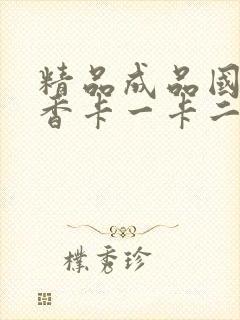 精品成品國
香卡一卡二
樸秀珍